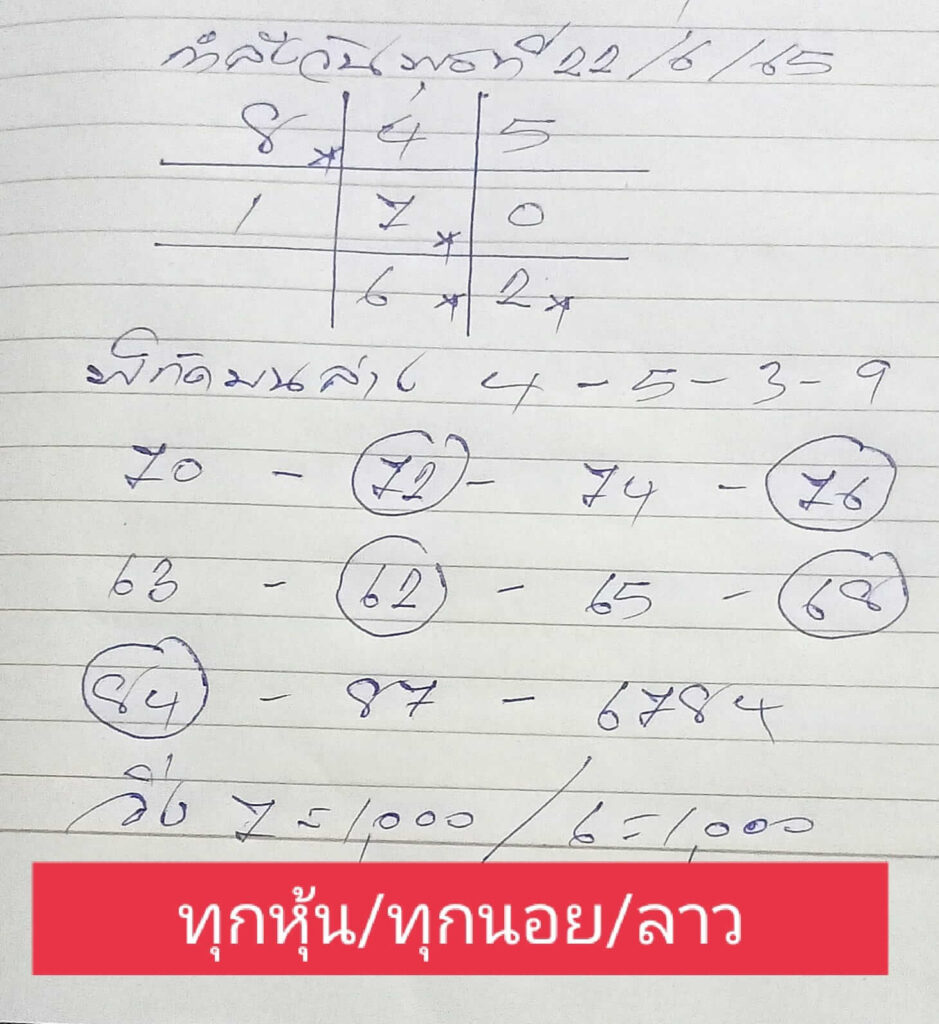 กำลังวันพุธที่ 22/6/65
8* 4 5
1 7* 0
6* 2*
พิกัดบนล่าง 4-5-3-9
70 - 72 - 74 - 76
63 - 62 - 65 - 68
84 - 87 - 6784
วิ่ง 7=1,000/6=1,000
ทุกหุ้น/ทุกนอย/ลาว